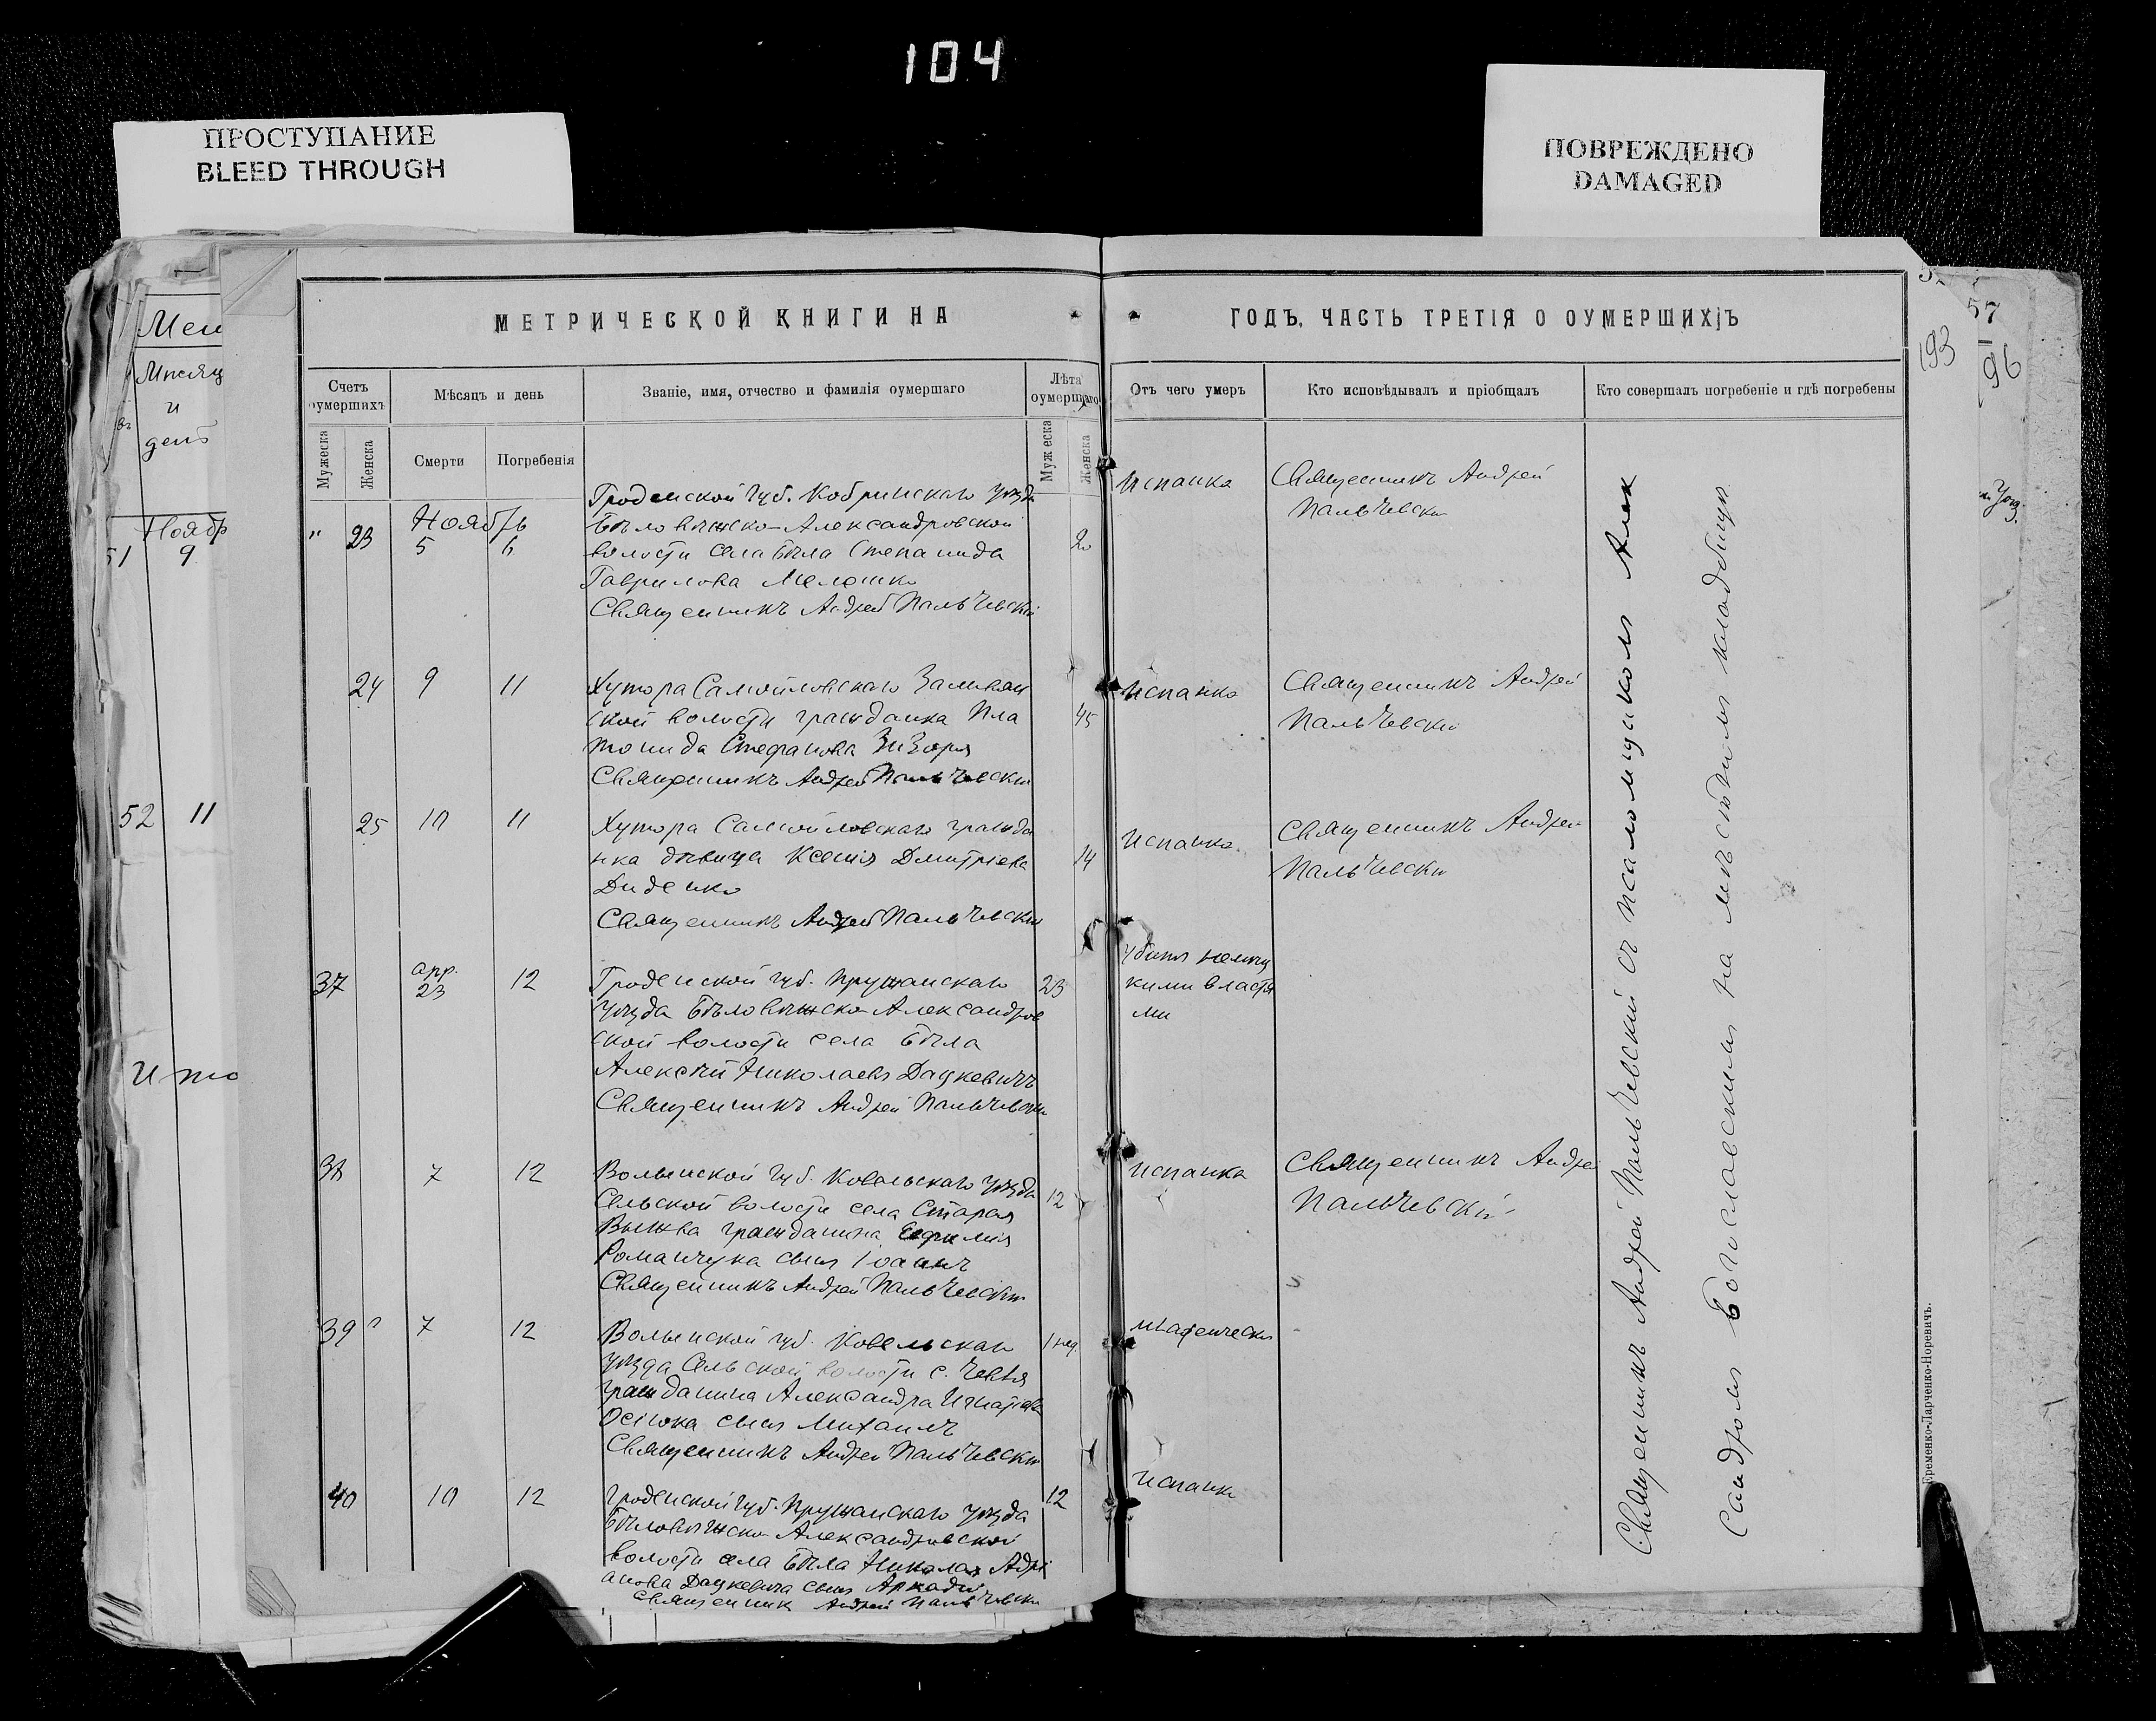 104
ПРОСТУПАНИЕ
BLEED THROUGH
ПОВРЕЖДЕНО
DAMAGED
57
193
96
Мѣсяц
и
день
Ноябр
51 9
52 11
Ито
МЕТРИЧЕСКОЙ КНИГИ НА
ГОДЪ, ЧАСТЬ ТРЕТІЯ О ОУМЕРШИХЪ
Счетъ оумершихъ
Мѣсяцъ и день
Званіе, имя, отчество и фамилія оумершаго
Лѣта оумершаго
Отъ чего умеръ
Кто исповѣдывалъ и пріобщалъ
Кто совершалъ погребеніе и гдѣ погребены
Мужеска
Женска
Смерти
Погребенія
Мужеска
Женска
Ноябрь
" 23 5 6
Гродненской губ. Кобринскаго уѣзда
Бѣловѣжско-Александровской
волости села Бѣла Степанида
Гаврилова
Священникъ Андрей Пальчевскій
20
испанка
Священникъ Андрей
Пальчевскі
24 9 11
Хутора Самойловскаго
ской волости гражданка Пла
тонида Стефанова
Священникъ Андрей Пальчевски
45
испанка
Священникъ Андрей
Пальчевскі
25 10 11
Хутора Самойловскаго гражда
нка дѣвица Ксенія Дмитріева
Диденко
Священникъ Андрей Пальчевски
14
испанка
Священникъ Андрей
Пальчевски
37 апр. 23 12
Гроденской губ. Пружанскаго
уѣзда Бѣловѣжско-Александров
ской волости села Бѣла
Алексѣй Николаевъ Дацкевичъ
Священникъ Андрей Пальчевски
23
Убитъ немец
кими властя
ми
38 7 12
Волынской губ. Ковельскаго уѣзда
Сельской волости села Старая
Выжва гражданина Евфимія
Романчука сынъ Іоаннъ
Священникъ Андрей Пальчевски
12
испанка
Священникъ Андрей
Пальчевскій
39 7 12
Волынской губ. Ковельскаго
уѣзда Сельской волости с.
гражданина Александра Игнатіева
сынъ Михаилъ
Священникъ Андрей Пальчевски
1 нед.
младенческ
40 10 12
Гроденской губ. Пружанскаго уѣзда
Бѣловѣжско-Александровской
волости села Бѣла Николая Адрі
анова Дацкевича сынъ Аркадій
Священник Андрей Пальчевски
12
испанк
Священникъ Андрей Пальчевскій съ псаломщикомъ Алек
сандромъ Богославскимъ на мѣстномъ кладбищѣ
Еременко-Ларченко-Норевичъ.